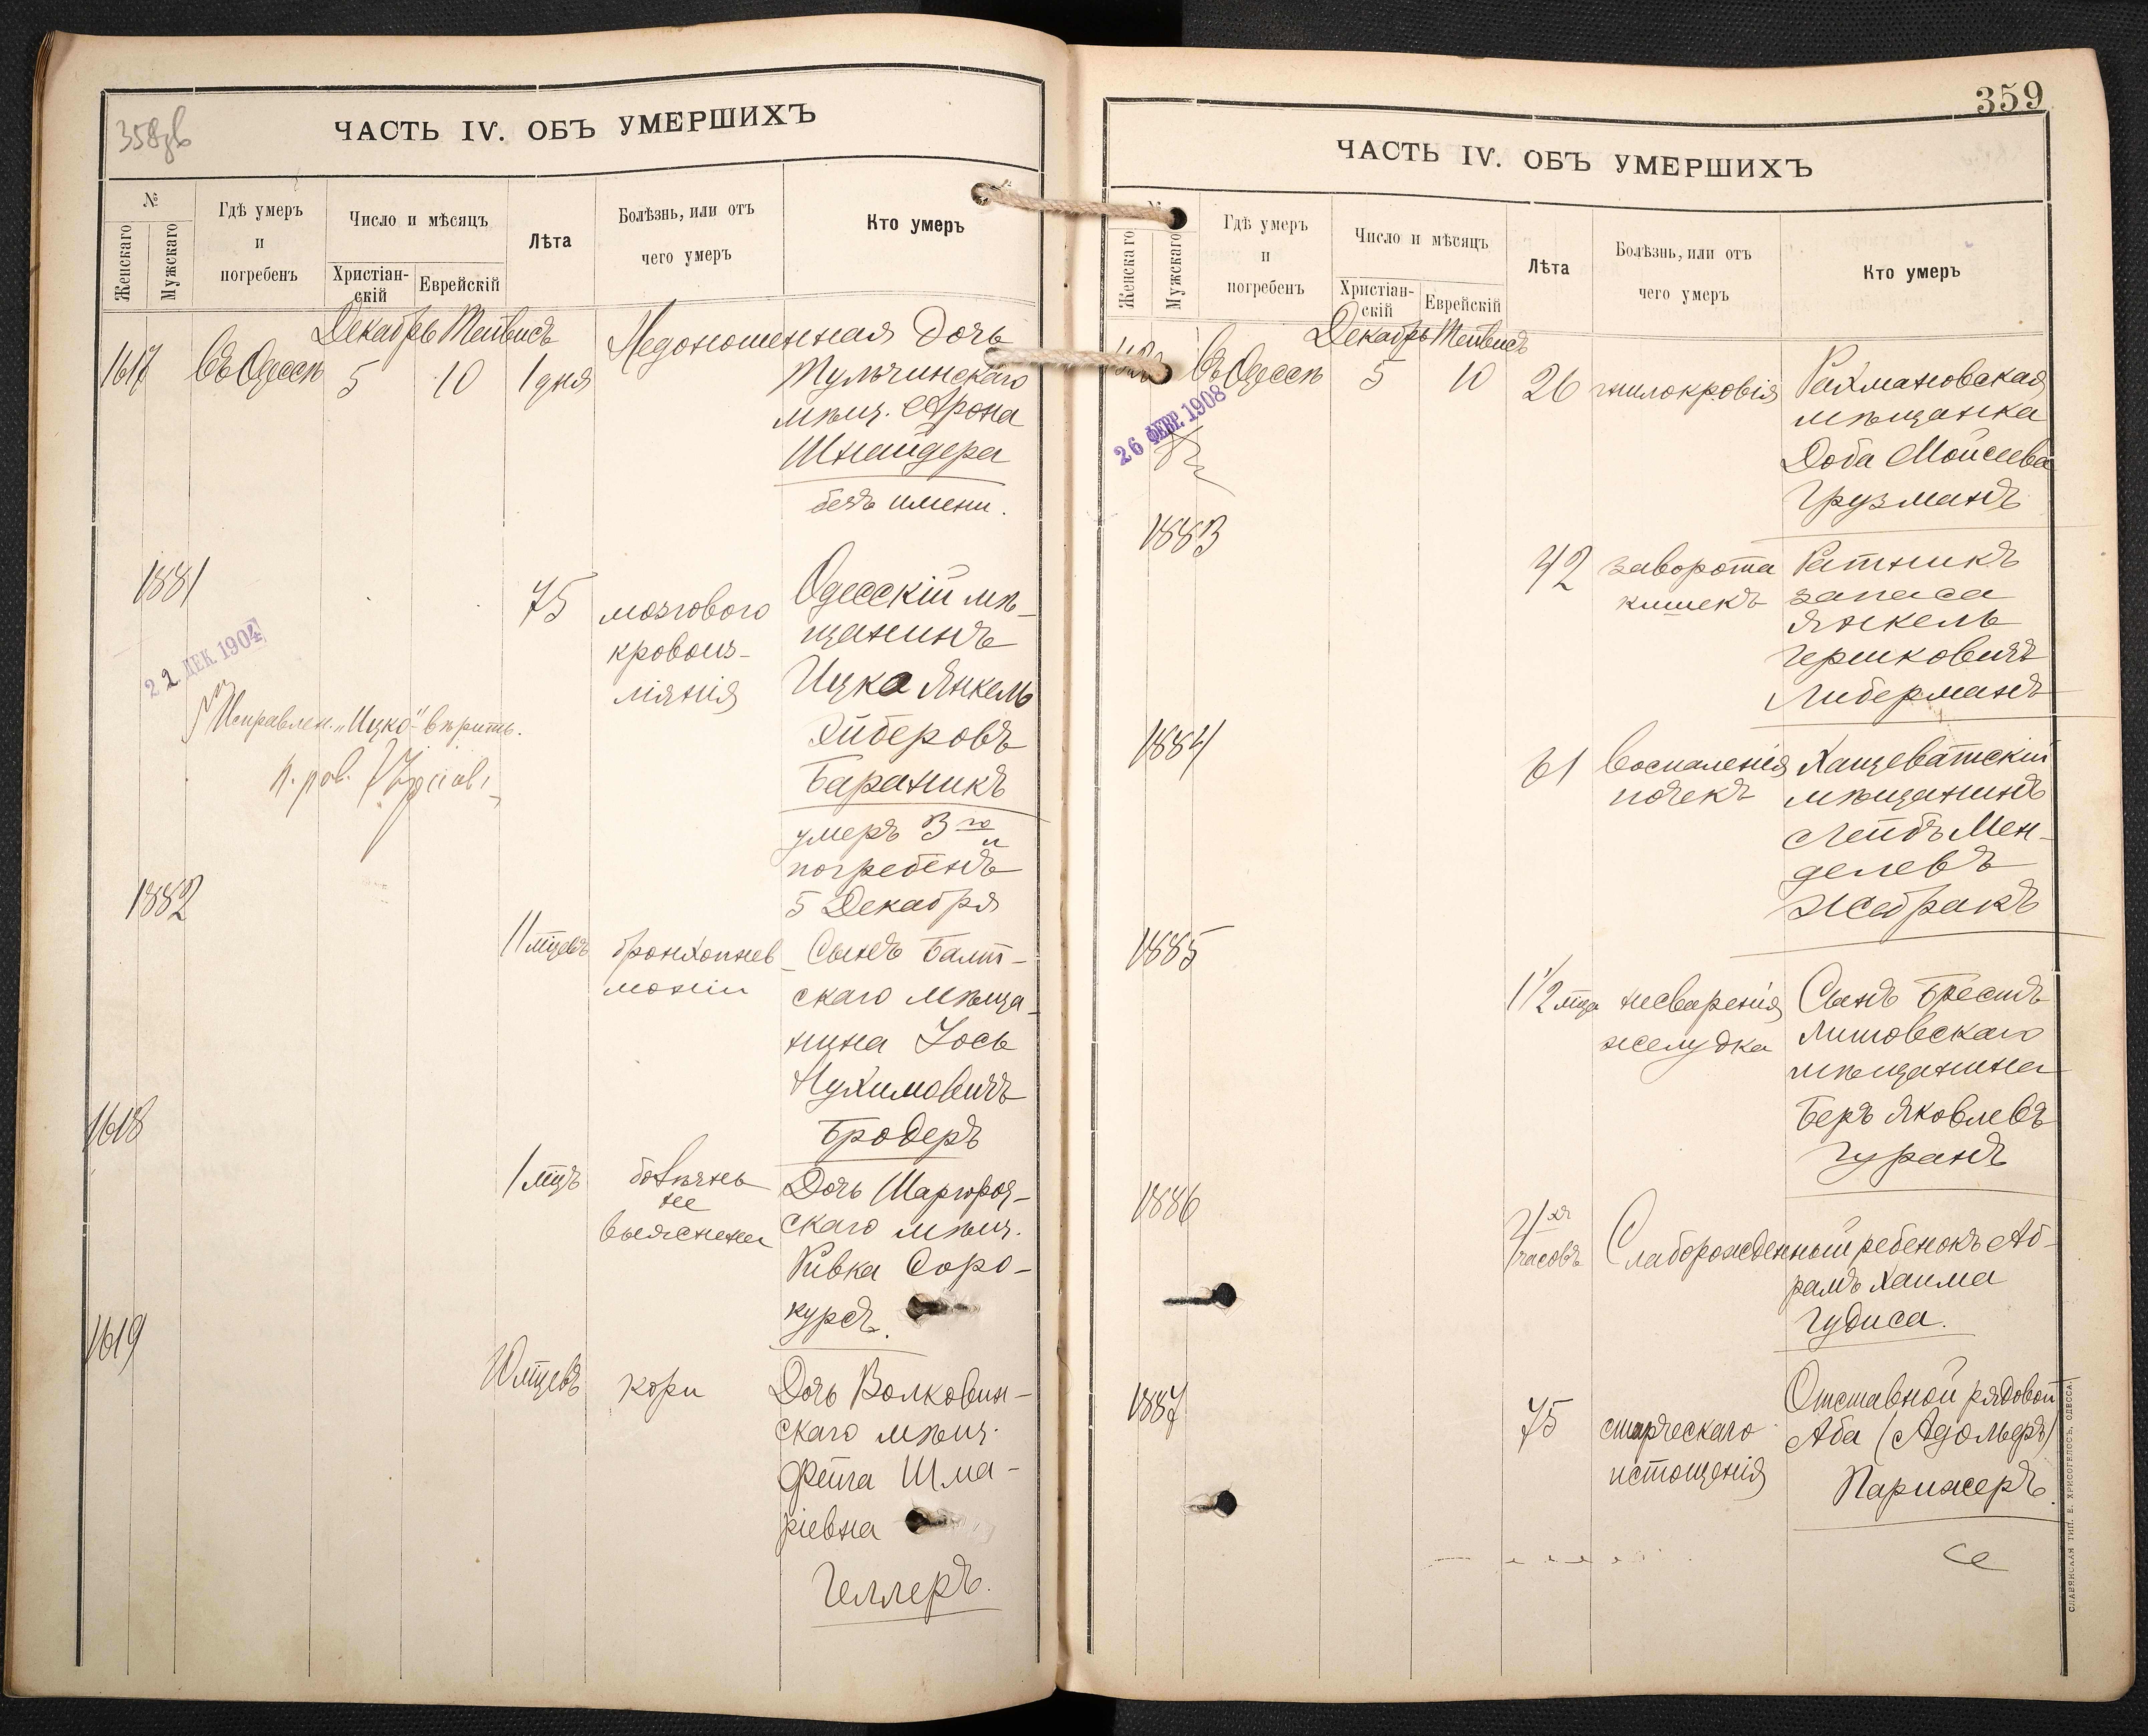 358об
ЧАСТЬ IV. ОБЪ УМЕРШИХЪ
№
Женскаго
Мужскаго
Гдѣ умеръ
и
погребенъ
Число и мѣсяцъ
Христіан-
скій
Еврейскій
Лѣта
Болѣзнь, или отъ
чего умеръ
Кто умеръ
Декабрь Тейвисъ
1617 Въ Одессѣ 5 10 1 дня Недоношенная дочь
Тульчинскаго
мѣщ. Арона
Шнайдера
безъ имени.
1881
75 мозгового
кровоиз-
ліянія
Одесскій мѣ-
щанинъ
Ицко Янкель
Хиберовъ
Бараникъ
умеръ 3го и
погребенъ
5 Декабря
22 ДЕК. 1904
Исправлен. "Ицко" вѣрить.
1882
11 мцевъ бронхопнев-
моніи
Сынъ Балт-
скаго мѣща-
нина Іось
Нухимовичъ
Бродеръ
1618
1 мцъ болѣзнь
не
выяснена
Дочь Шаргород-
скаго мѣщ.
Ривка Соро-
куръ.
1619
10 мцевъ кори
Дочь Волковин-
скаго мѣщ.
Фейга Шма-
ріевна
Геллеръ.
359
ЧАСТЬ IV. ОБЪ УМЕРШИХЪ
№
Женскаго
Мужскаго
Гдѣ умеръ
и
погребенъ
Число и мѣсяцъ
Христіан-
скій
Еврейскій
Лѣта
Болѣзнь, или отъ
чего умеръ
Кто умеръ
Декабрь Тейвисъ
Въ Одессѣ 5 10 26 гнилокровія
Рахмановская
мѣщанка
Доба Мойсеева
Грузманъ
26 ФЕВР. 1908
1883
42 заворота
кишекъ
Ратникъ
запаса
Янкель
Гершковичъ
Либерманъ
1884
61 воспаленія
почекъ
Хащеватскій
мѣщанинъ
Лейбъ Мен-
делевъ
Жебракъ
1885
1 1/2 мца несваренія
желудка
Сынъ Брестъ
Литовскаго
мѣщанина
Беръ Яковлевъ
Гуранъ
1886
часовъ
Слаборожденный ребенокъ Аб-
рамъ Хаима
Гудиса.
1887
75 старческаго
истощенія
Отставной рядовой
Аба (Адольфъ)
Парижеръ.
СЛАВЯНСКАЯ ТИП. Е. ХРИСОГЕЛОСЪ, ОДЕССА.